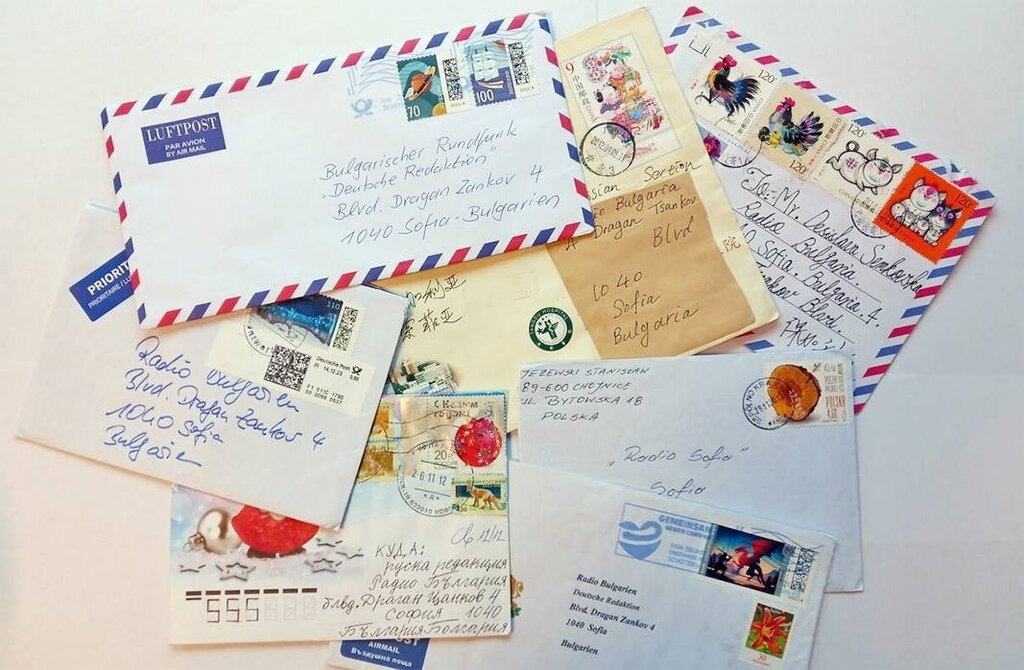 LUFTPOST
PAR AVION
BY AIR MAIL
70
100
Bulgarischer Rundfunk
"Deutsche Redaktion"
Blvd. Dragan Zankov 4
1040 Sofia-Bulgarien
9
中国邮政
Bulgaria
Dragan Tsankov
Blvd
1040
Sofia
Bulgaria
120
120
120
120
To: Mr.
Radio Bulgaria.
Sofia. Bulgaria.
Blvd.
PRIORITAIRE
110
Deutsche Post
FI 14.12.23
Radio Bulgarien
Blvd. Dragan Zankov 4
1040 Sofia
Bulgarien
STANISŁAW
89-600 CHOJNICE
UL. BYTOWSKA 18
POLSKA
POLSKA
"Radio Sofia"
Sofia
20
26 11 12
КУДА:
руска редакция
Радио България
блвд. Драган Цанков 4
СОФИЯ 1040
България Болгария
AIRMAIL
Въздушна поща
GEMEINSAM
Radio Bulgarien
Deutsche Redaktion
Blvd. Dragan Zankov 4
1040 Sofia
Bulgarien
30